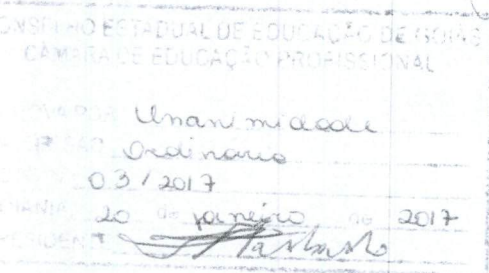 CONSELHO ESTADUAL DE EDUCAÇÃO DE GOIÁS
CÂMARA DE EDUCAÇÃO PROFISSIONAL
Unanimidade
Ordinária
03/2017
20 de janeiro de 2017
PRESIDENTE